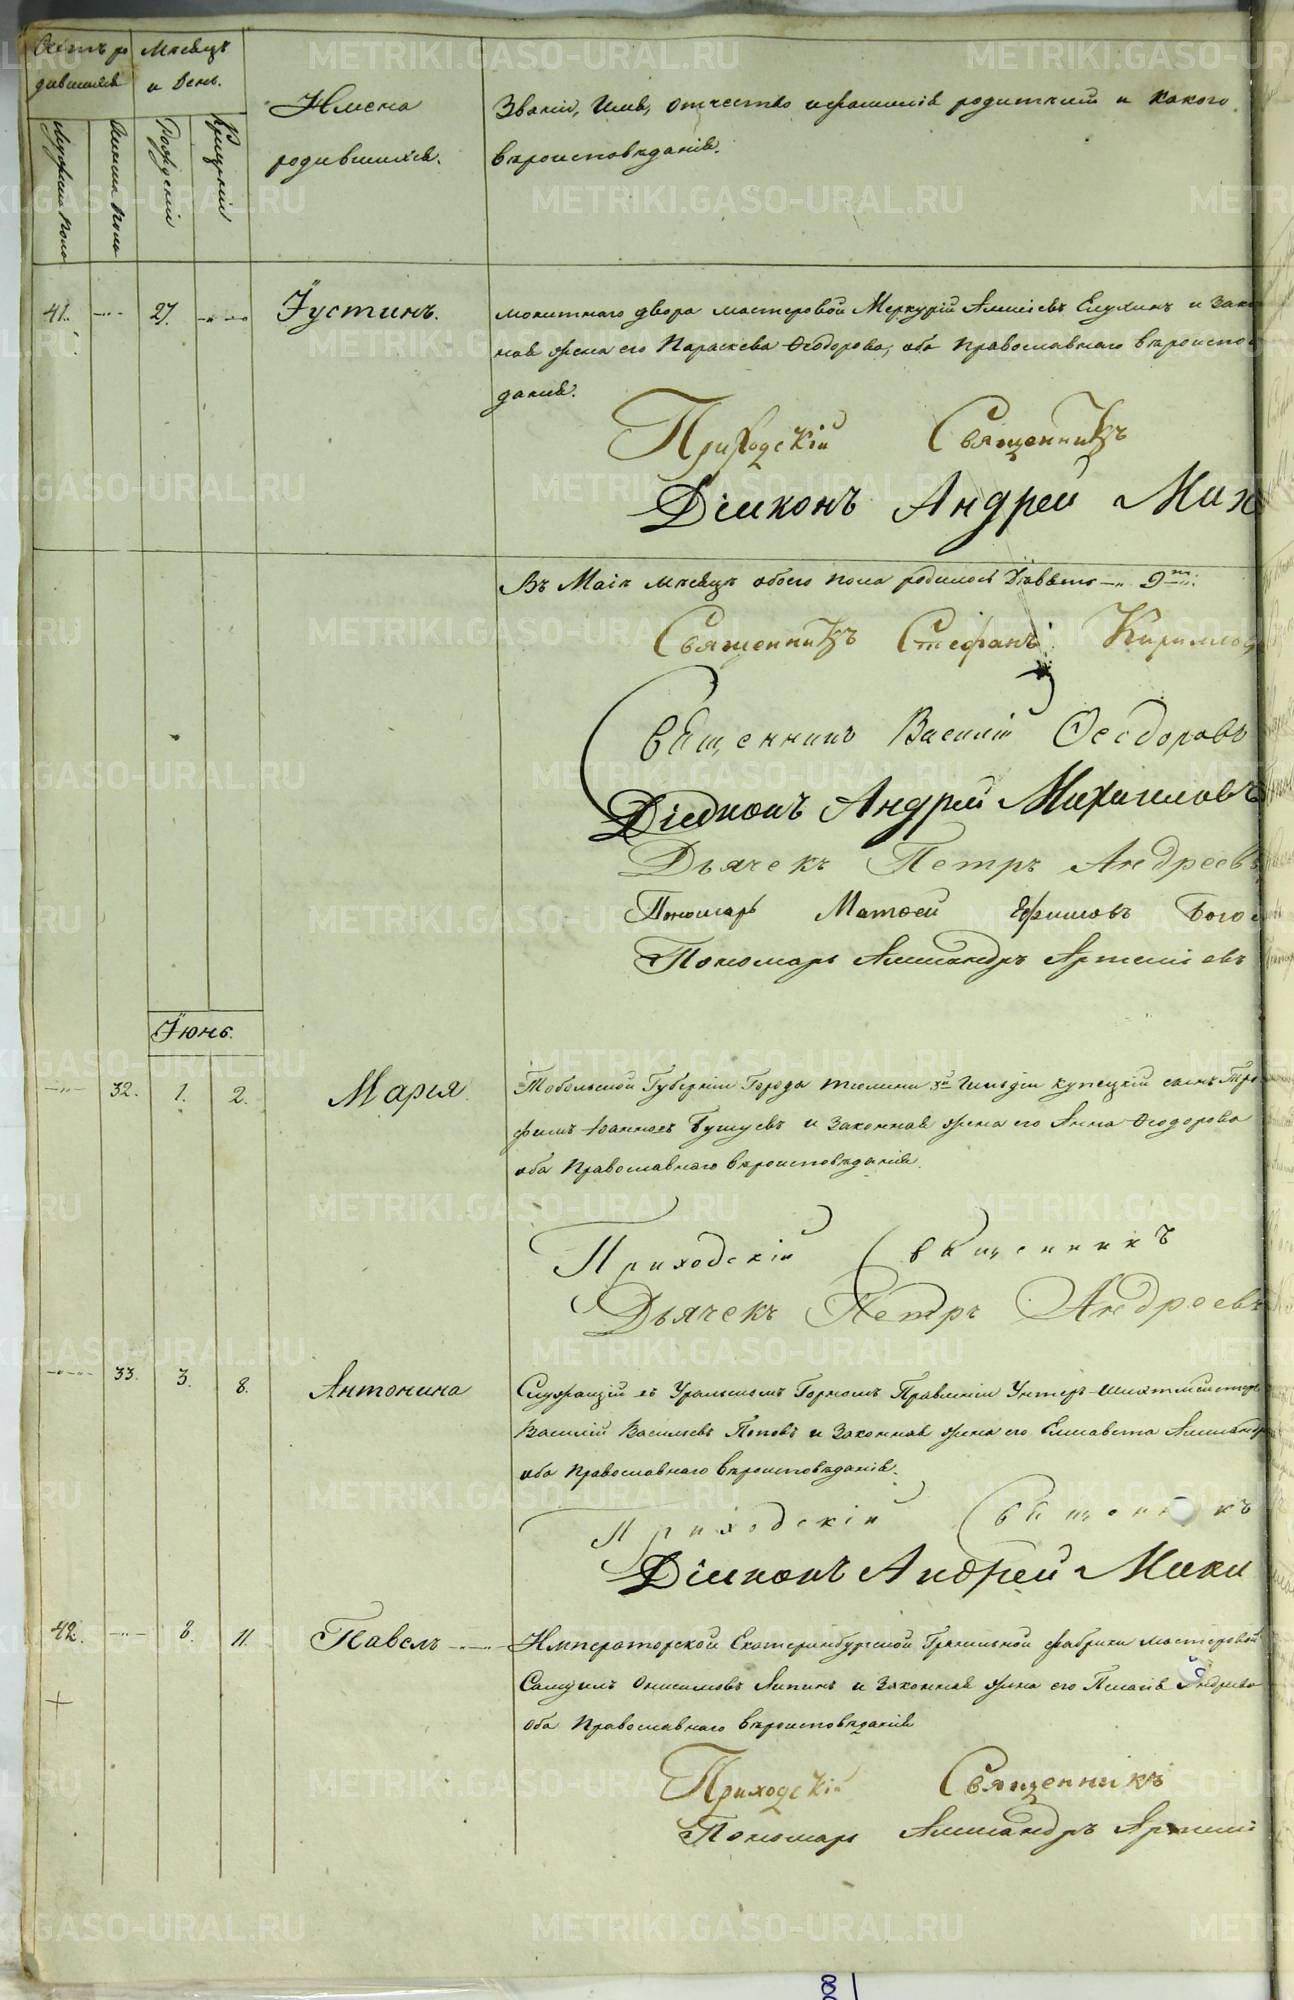 Счетъ ро
дившихся
Мѣсяцъ
и день.
Имена
родившихся.
Званіе, имя, отчество и фамилія родителей и какого
вѣроисповѣданія.
Мужеска пола
Женска пола
Рожденія
Крещенія
41. 27. Іустинъ. монетнаго двора мастеровой Меркурій Алексѣевъ Елухинъ и зако
ная жена его Параскева Ѳеодорова, оба православнаго вѣроиспо
данія.
Приходскій Священникъ
Діаконъ Андрей Мих
Въ Маіѣ мѣсяцѣ обоего пола родилось Девять 9ть.
Священникъ Стефанъ Кириллов
Священникъ Василій Ѳеодоровъ
Діаконъ Андрей Михаиловъ
Дьячекъ Петръ Андреевъ
Пономарь Матѳей Ефимовъ Бого
Пономарь Александръ Артеміевъ
Іюнь.
32. 1. 2. Марія Тобольской Губерніи Города Тюмени 3й Гильдіи купецкій сынъ Тро
фимъ Іоанновъ Бушуевъ и законная жена его Анна Ѳеодорова
оба Православнаго вѣроисповѣданія.
Приходскій Священникъ
Дьячекъ Петръ Андреевъ
33. 3. 8. Антонина Служащій въ Уральскомъ Горномъ Правленіи Унтеръ-шихтмейстеръ
Василій Васильевъ Поповъ и законная жена его Елисавета Александр
оба православнаго вѣроисповѣданія.
Приходскій Священникъ
Діаконъ Андрей Миха
42. 8. 11. Павелъ Императорской Екатеринбургской Гранильной фабрики мастеровой
Самуилъ Онисимовъ Липинъ и законная жена его Пелагія Андреева
оба Православнаго вѣроисповѣданія
Приходскій Священникъ
Пономарь Александръ Артемі
METRIKI.GASO-URAL.RU